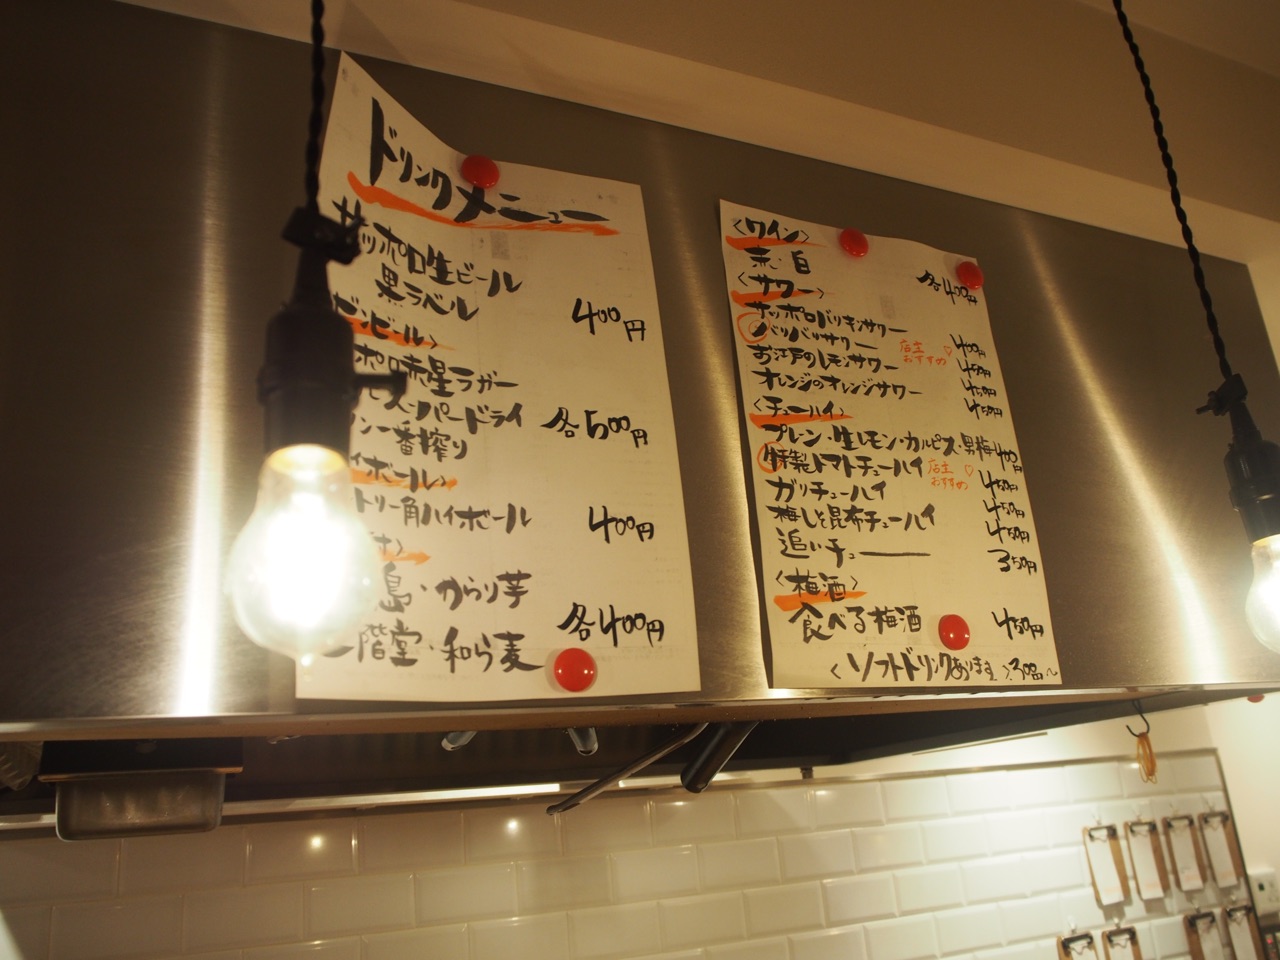 ドリンクメニュー
サッポロ生ビール
黒ラベル
400円
ビンビール〉
ポロ赤星ラガー
スーパードライ
各500円
ン一番搾り
イボール〉
トリー角ハイボール
400円
島・からり芋
各400円
二階堂・和ら麦
〈ワイン〉
赤・白
各400円
〈サワー〉
サッポロドリキンサワー 400円
バリバリサワー 店主おすすめ♡ 450円
お江戸のレモンサワー 450円
オレンジのオレンジサワー 450円
〈チューハイ〉
プレン・生レモン・カルピス・男梅 400円
特製トマトチューハイ 店主おすすめ♡ 450円
ガリチューハイ 450円
梅しそ昆布チューハイ 450円
追いチュー 350円
〈梅酒〉
食べる梅酒 450円
〈ソフトドリンクあります〉300〜